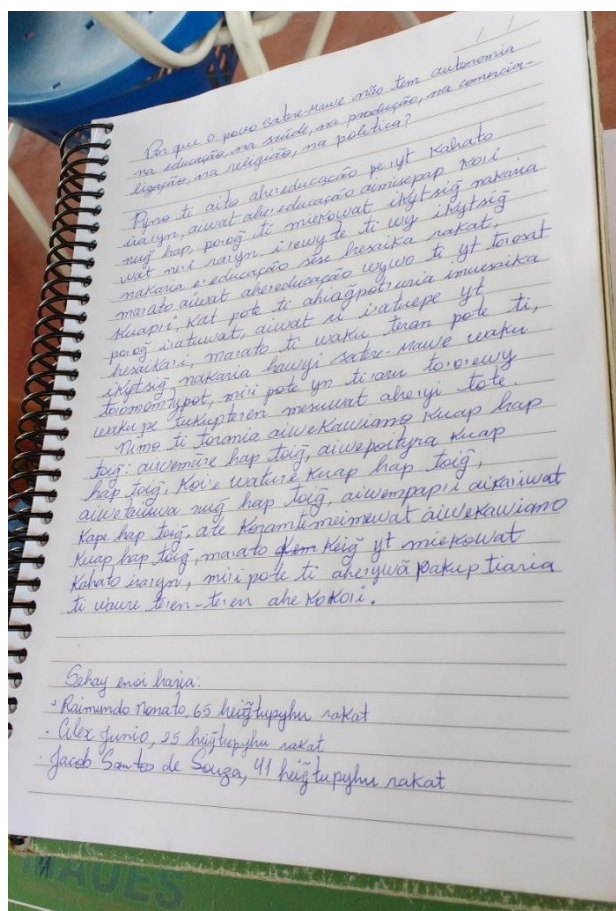 Por que o povo satere-mawe não tem autonomia
na educação, na saúde, na produção, na comercia-
lização, na religião, na política?
Pyno ti aito ahe:educação pe:iyt kahato
ira:yn, aiwat ahe:educação aimisepap koi:i
nug̃ hap, poiog̃ ti miekowat ikytsig̃ nakaria
wat mi:i ra:yn i:ewyte ti wy ikytsig̃
nakaria e:educação sese hesaika rakat,
ma:ato aiwat ahe:educação wywo ti yt to:osat
kuap:i, kat pote ti ahiag̃pot:uria imuesaika
poiog̃ i:atuwat, aiwat i:atuepe yt
hesaika:i, ma:ato ti waku teran pote ti,
ikytsig̃, nakaria hawyi satere-mawe waku
to:omomtypot, mi:i pote yn ti:aru to:o:ewy
waku pe tukupte:en mesuwat ahe:yi tote.
Nimo ti torania aiwekawiano kuap hap
toig̃: aiwemū:e hap toig̃, aiwepoityra kuap
hap toig̃, koi:e wature kuap hap toig̃,
nug̃ hap toig̃, aiwempap:i aikaiwat
kape hap toig̃, ate aiwekawiano
kuap hap toig̃, ma:ato keig̃ yt miekowat
kahato ira:yn, mi:i pote ti ahe:ywã pakup tiaria
ti te:en-te:en ahe koko:i.
Sehay enoi haria:
Raimundo Nonato, 65 heig̃tupyhu rakat
· Alex Junio, 25 heig̃tupyhu rakat
· Jacob Santos de Souza, 41 heig̃tupyhu rakat
MAUES